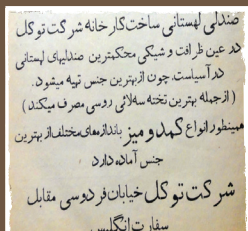 صندلی لهستانی ساخت کارخانه شرکت توکل
در عین ظرافت و شیکی محکمترین صندلیهای لهستانی
در آسیاست. چون از بهترین جنس تهیه میشود.
( ازجمله بهترین تخته سه‌لائی روسی مصرف میکند )
همینطور انواع کمد و میز باندازه‌های مختلف از بهترین
جنس آماده دارد
شرکت توکل خیابان فردوسی مقابل
سفارت انگلیس